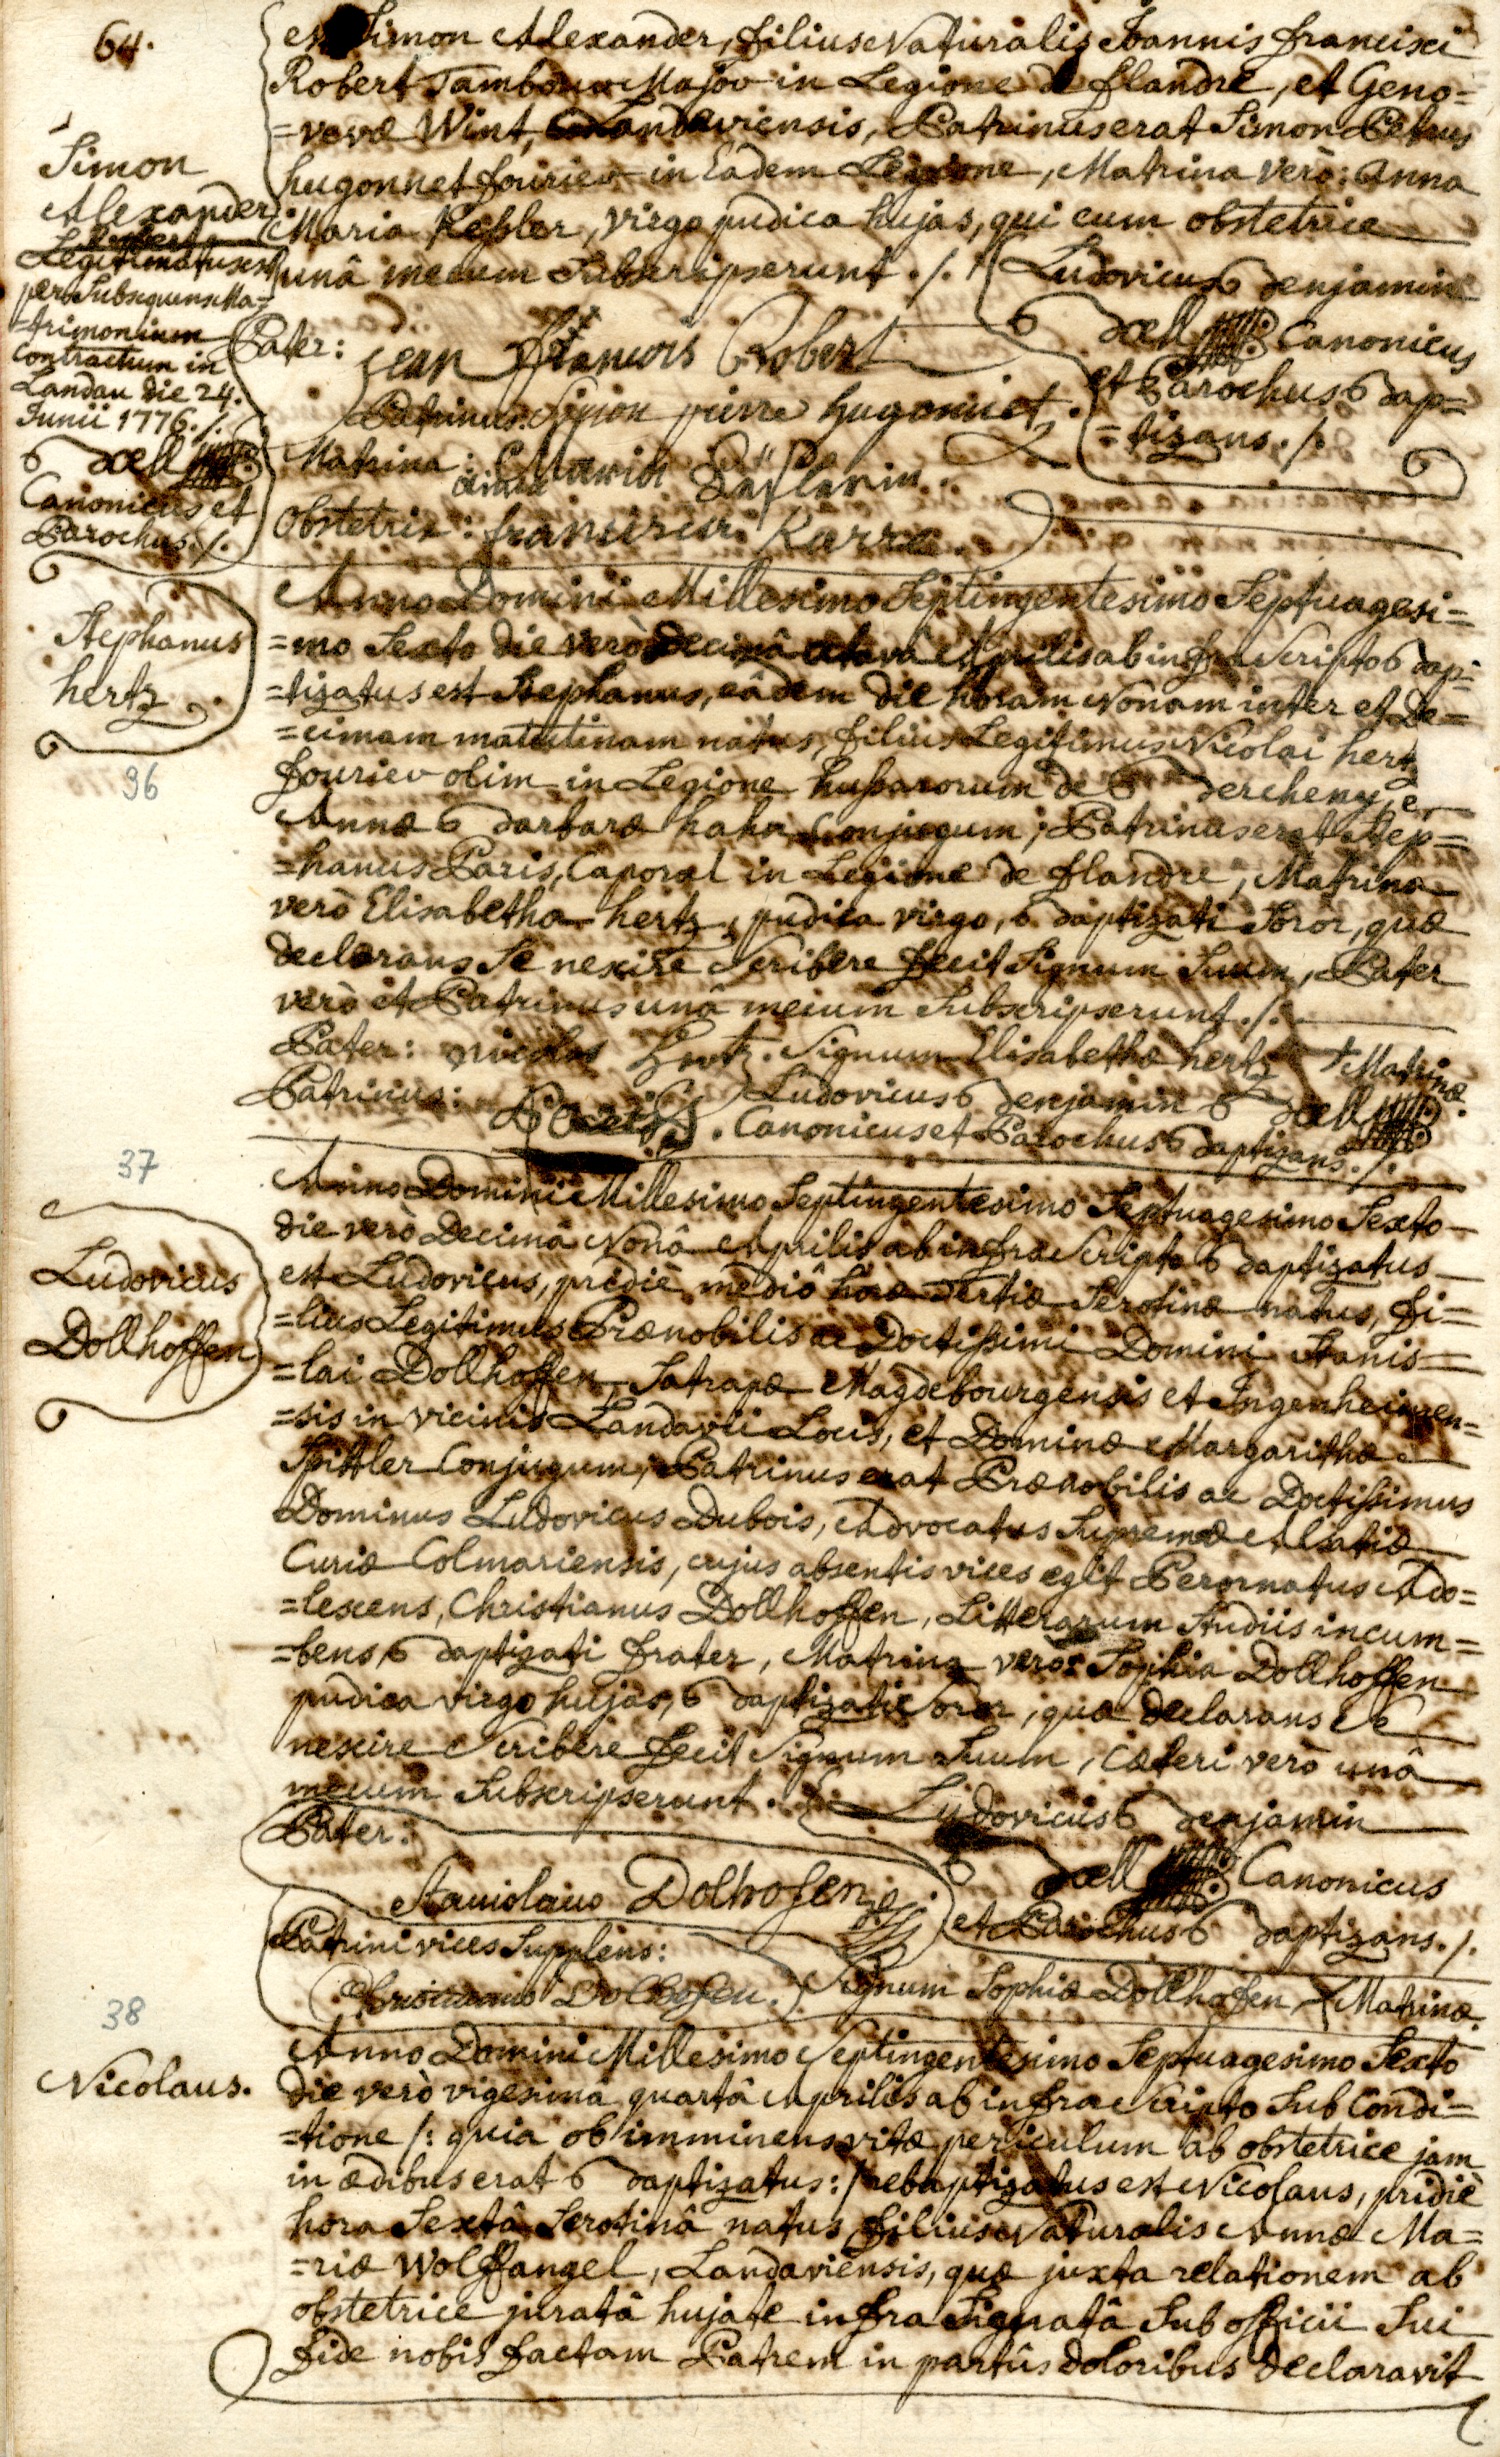 64.
est Simon Alexander, filius Naturalis Joannis francisci
Robert Tambour Major in Legione de flandre, et Geno=
=vevæ Wint, Landaviensis, Patrinus erat Simon Petrus
hugonnet fourier in Eadem Legione, Matrina verò: Anna
Maria Keßler, virgo pudica hujas, qui cum obstetrice
unâ mecum Subscripserunt ./.
Simon
Alexander
Robert
Legitimatus est
per Subsequens Ma=
=trimonium
contractum in
Landau die 24.
Junii 1776 ./.
Bæll
Canonicus et
Parochus ./.
Ludovicus Benjamin
Bæll Canonicus
et Parochus Bap=
=tizans ./.
Pater: jean francois Robert
Patrinus: Simon pierre hugonnet.
Matrina: anna Maria
Obstetrix: Karre.
Stephanus
hertz
96
Anno Domini Millesimo Septingentesimo Septuagesi=
=mo Sexto die verò Decimâ octavâ Aprilis ab infra Scripto Bap=
=tizatus est Stephanus, eâdem die horam Nonam inter et De=
=cimam matutinam natus, filius Legitimus Nicolai hertz
fourier olim in Legione hußarorum de Bercheny, e
Annæ Barbaræ hahn Conjugum; Patrinus erat Step=
=hanus Paris, Caporal in Legione de flandre, Matrina
verò Elisabetha hertz, pudica virgo, Baptizati Soror, quæ
declarans Se nescire Scribere fecit Signum Suum, Pater
verò et Patrinus unâ mecum Subscripserunt ./.
Pater: nicolas hertz. Signum Elisabethæ hertz + Matrinæ.
Patrinus: Paris. Ludovicus Benjamin Bæll
Canonicus et Parochus Baptizans ./.
37
Ludovicus
Dollhoffen
Anno Domini Millesimo Septingentesimo Septuagesimo Sexto
die verò Decimâ Nonâ Aprilis ab infra Scripto Baptizatus
est Ludovicus, pridiè mediô horæ Tertiæ Serotinæ natus, fi=
=lius Legitimus Prænobilis ac Doctißimi Domini Stanis=
=lai Dollhoffen, Satrapæ Magdebourgensis et Ingenheimen=
=sis in vicinis Landavii Locis, et Dominæ Margarithæ
Spittler Conjugum; Patrinus erat Prænobilis ac Doctißimus
Dominus Ludovicus Dubois, Advocatus Supremæ Alsatiæ
Curiæ Colmariensis, cujus absentis vices egit Perornatus Ado=
=lescens, Christianus Dollhoffen, Litterarum Studiis incum=
=bens, Baptizati frater, Matrina verò: Sophia Dollhoffen
pudica virgo hujas, Baptizati Soror, quæ declarans Se
nescire Scribere fecit Signum Suum, cæteri verò unâ
mecum Subscripserunt.
Ludovicus Benjamin
Bæll Canonicus
et Parochus Baptizans ./.
Pater:
Stanislaus Dolhofen
Patrini vices Supplens:
Christianus Dolhofen. Signum Sophiæ Dollhofen + Matrinæ.
38
Nicolaus.
Anno Domini Millesimo Septingentesimo Septuagesimo Sexto
die verò vigesimâ quartâ Aprilis ab infra Scripto Sub Condi=
=tione /: quia ob imminens vitæ periculum ab obstetrice jam
in ædibus erat Baptizatus :/ rebaptizatus est Nicolaus, pridiè
hora Sextâ Serotinâ natus, filius Naturalis Annæ Ma=
=riæ Wolffangel, Landaviensis, quæ juxta relationem ab
obstetrice juratâ hujate infra Signatâ Sub officii Sui
fide nobis factam Patrem in partûs doloribus declaravit